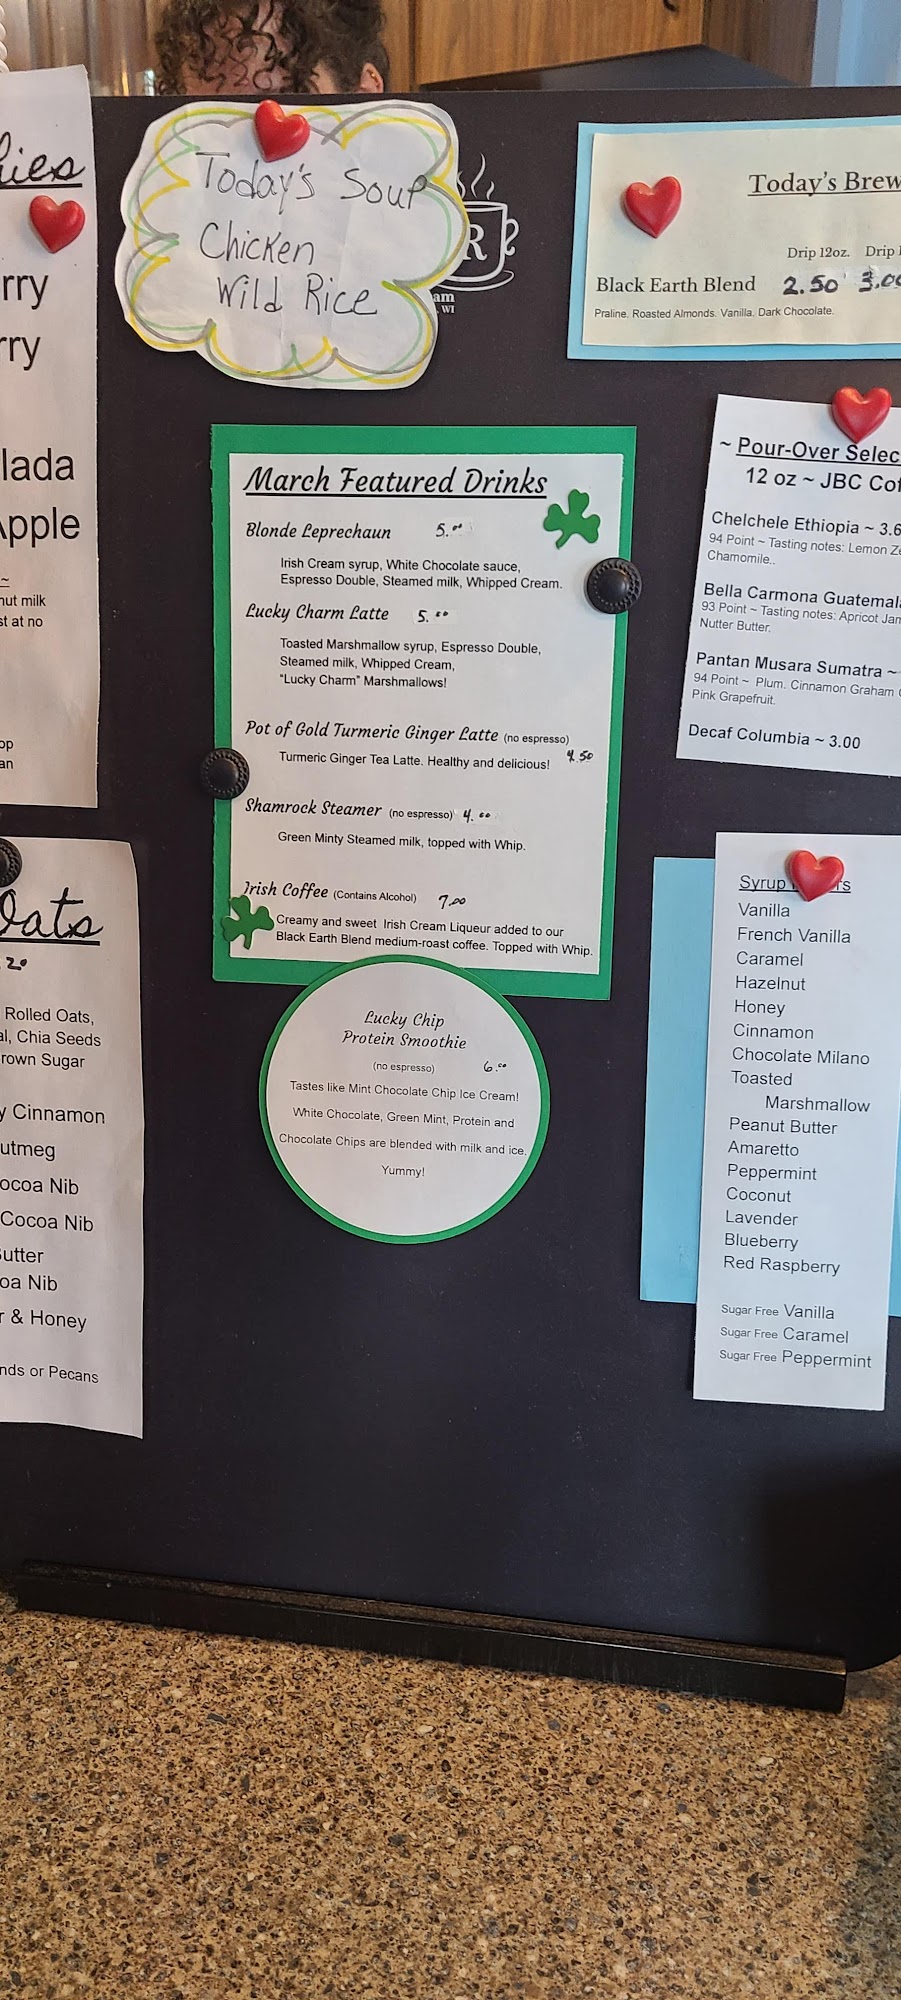 Today's Soup
Chicken
Wild Rice
R
WI
Today's Brew
Drip 12oz. Drip
Black Earth Blend 2.50 3.00
Praline. Roasted Almonds. Vanilla. Dark Chocolate.
rry
rry
lada
Apple
nut milk
st at no
op
an
March Featured Drinks
Blonde Leprechaun 5.00
Irish Cream syrup, White Chocolate sauce,
Espresso Double, Steamed milk, Whipped Cream.
Lucky Charm Latte 5.00
Toasted Marshmallow syrup, Espresso Double,
Steamed milk, Whipped Cream,
"Lucky Charm" Marshmallows!
Pot of Gold Turmeric Ginger Latte (no espresso)
Turmeric Ginger Tea Latte. Healthy and delicious! 4.50
Shamrock Steamer (no espresso) 4.00
Green Minty Steamed milk, topped with Whip.
Irish Coffee (Contains Alcohol) 7.00
Creamy and sweet Irish Cream Liqueur added to our
Black Earth Blend medium-roast coffee. Topped with Whip.
Lucky Chip
Protein Smoothie
(no espresso) 6.00
Tastes like Mint Chocolate Chip Ice Cream!
White Chocolate, Green Mint, Protein and
Chocolate Chips are blended with milk and ice.
Yummy!
~ Pour-Over Selec
12 oz ~ JBC Cof
Chelchele Ethiopia ~ 3.6
94 Point ~ Tasting notes: Lemon Ze
Chamomile..
Bella Carmona Guatemala
93 Point ~ Tasting notes: Apricot Jam
Nutter Butter.
Pantan Musara Sumatra ~
94 Point ~ Plum. Cinnamon Graham
Pink Grapefruit.
Decaf Columbia ~ 3.00
Oats
.20
Rolled Oats,
al, Chia Seeds
rown Sugar
y Cinnamon
utmeg
ocoa Nib
Cocoa Nib
Butter
oa Nib
r & Honey
nds or Pecans
Syrup
Vanilla
French Vanilla
Caramel
Hazelnut
Honey
Cinnamon
Chocolate Milano
Toasted
Marshmallow
Peanut Butter
Amaretto
Peppermint
Coconut
Lavender
Blueberry
Red Raspberry
Sugar Free Vanilla
Sugar Free Caramel
Sugar Free Peppermint